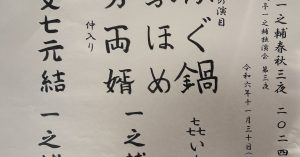 一之輔春秋三夜 二〇二四
一之輔独演会 第三夜
令和六年十一月三十日(
の演目
ぐ鍋 㐂い
ほめ 一之輔
仲入り
両婿
七元結 一之